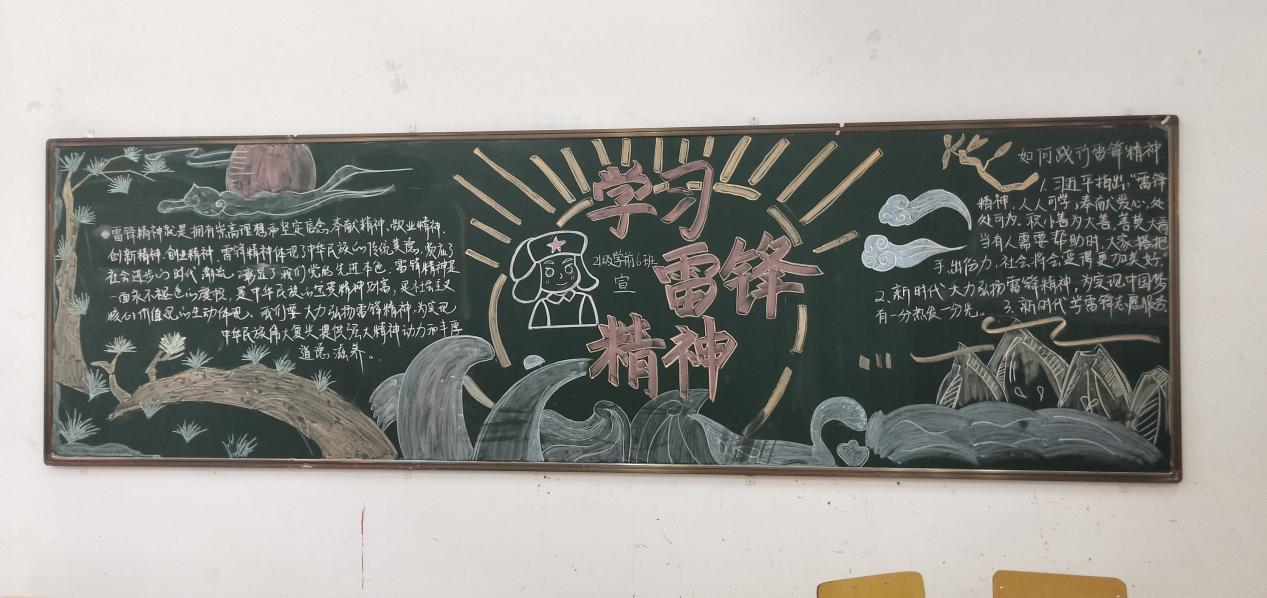 雷锋精神就是拥有崇高理想和坚定信念,奉献精神、敬业精神、
创新精神、创业精神。雷锋精神体现了中华民族的传统美德,顺应了
社会进步的时代潮流,彰显了我们党的先进本色。雷锋精神是
一面永不褪色的旗帜,是中华民族的宝贵精神财富,是社会主义
核心价值观的生动体现。我们要大力弘扬雷锋精神,为实现
中华民族伟大复兴提供强大精神动力和丰厚
道德滋养。
学习
雷锋
精神
21级学前6班
宣
如何践行雷锋精神
1.习近平指出:“雷锋
精神,人人可学,奉献爱心,处
处可为。积小善为大善,善莫大焉
当有人需要帮助时,大家搭把
手、出份力,社会将会变得更加美好。”
2.新时代大力弘扬雷锋精神,为实现中国梦
有一分热发一分光。3.新时代学雷锋志愿服务